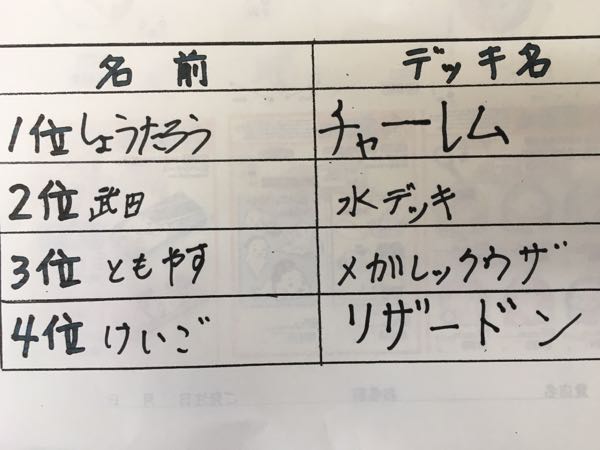 名前 デッキ名
1位 しょうたろう チャーレム
2位 武田 水デッキ
3位 ともやす メガレックウザ
4位 けいご リザードン